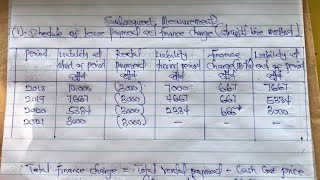 Subsequent Measurement
(1) Schedule of lease payment and finance charge (straight line method)
Period Liability at Rental Liability Finance Liability at
start of period payment during period Charge end of period
2018 10,000 (3000) 7000 667 7667
2019 7667 (3000) 4667 667 5334
2020 5334 (3000) 2334 666 3000
2021 3000 (3000) - - -
Total finance charge = Total rental payment - Cash cost price